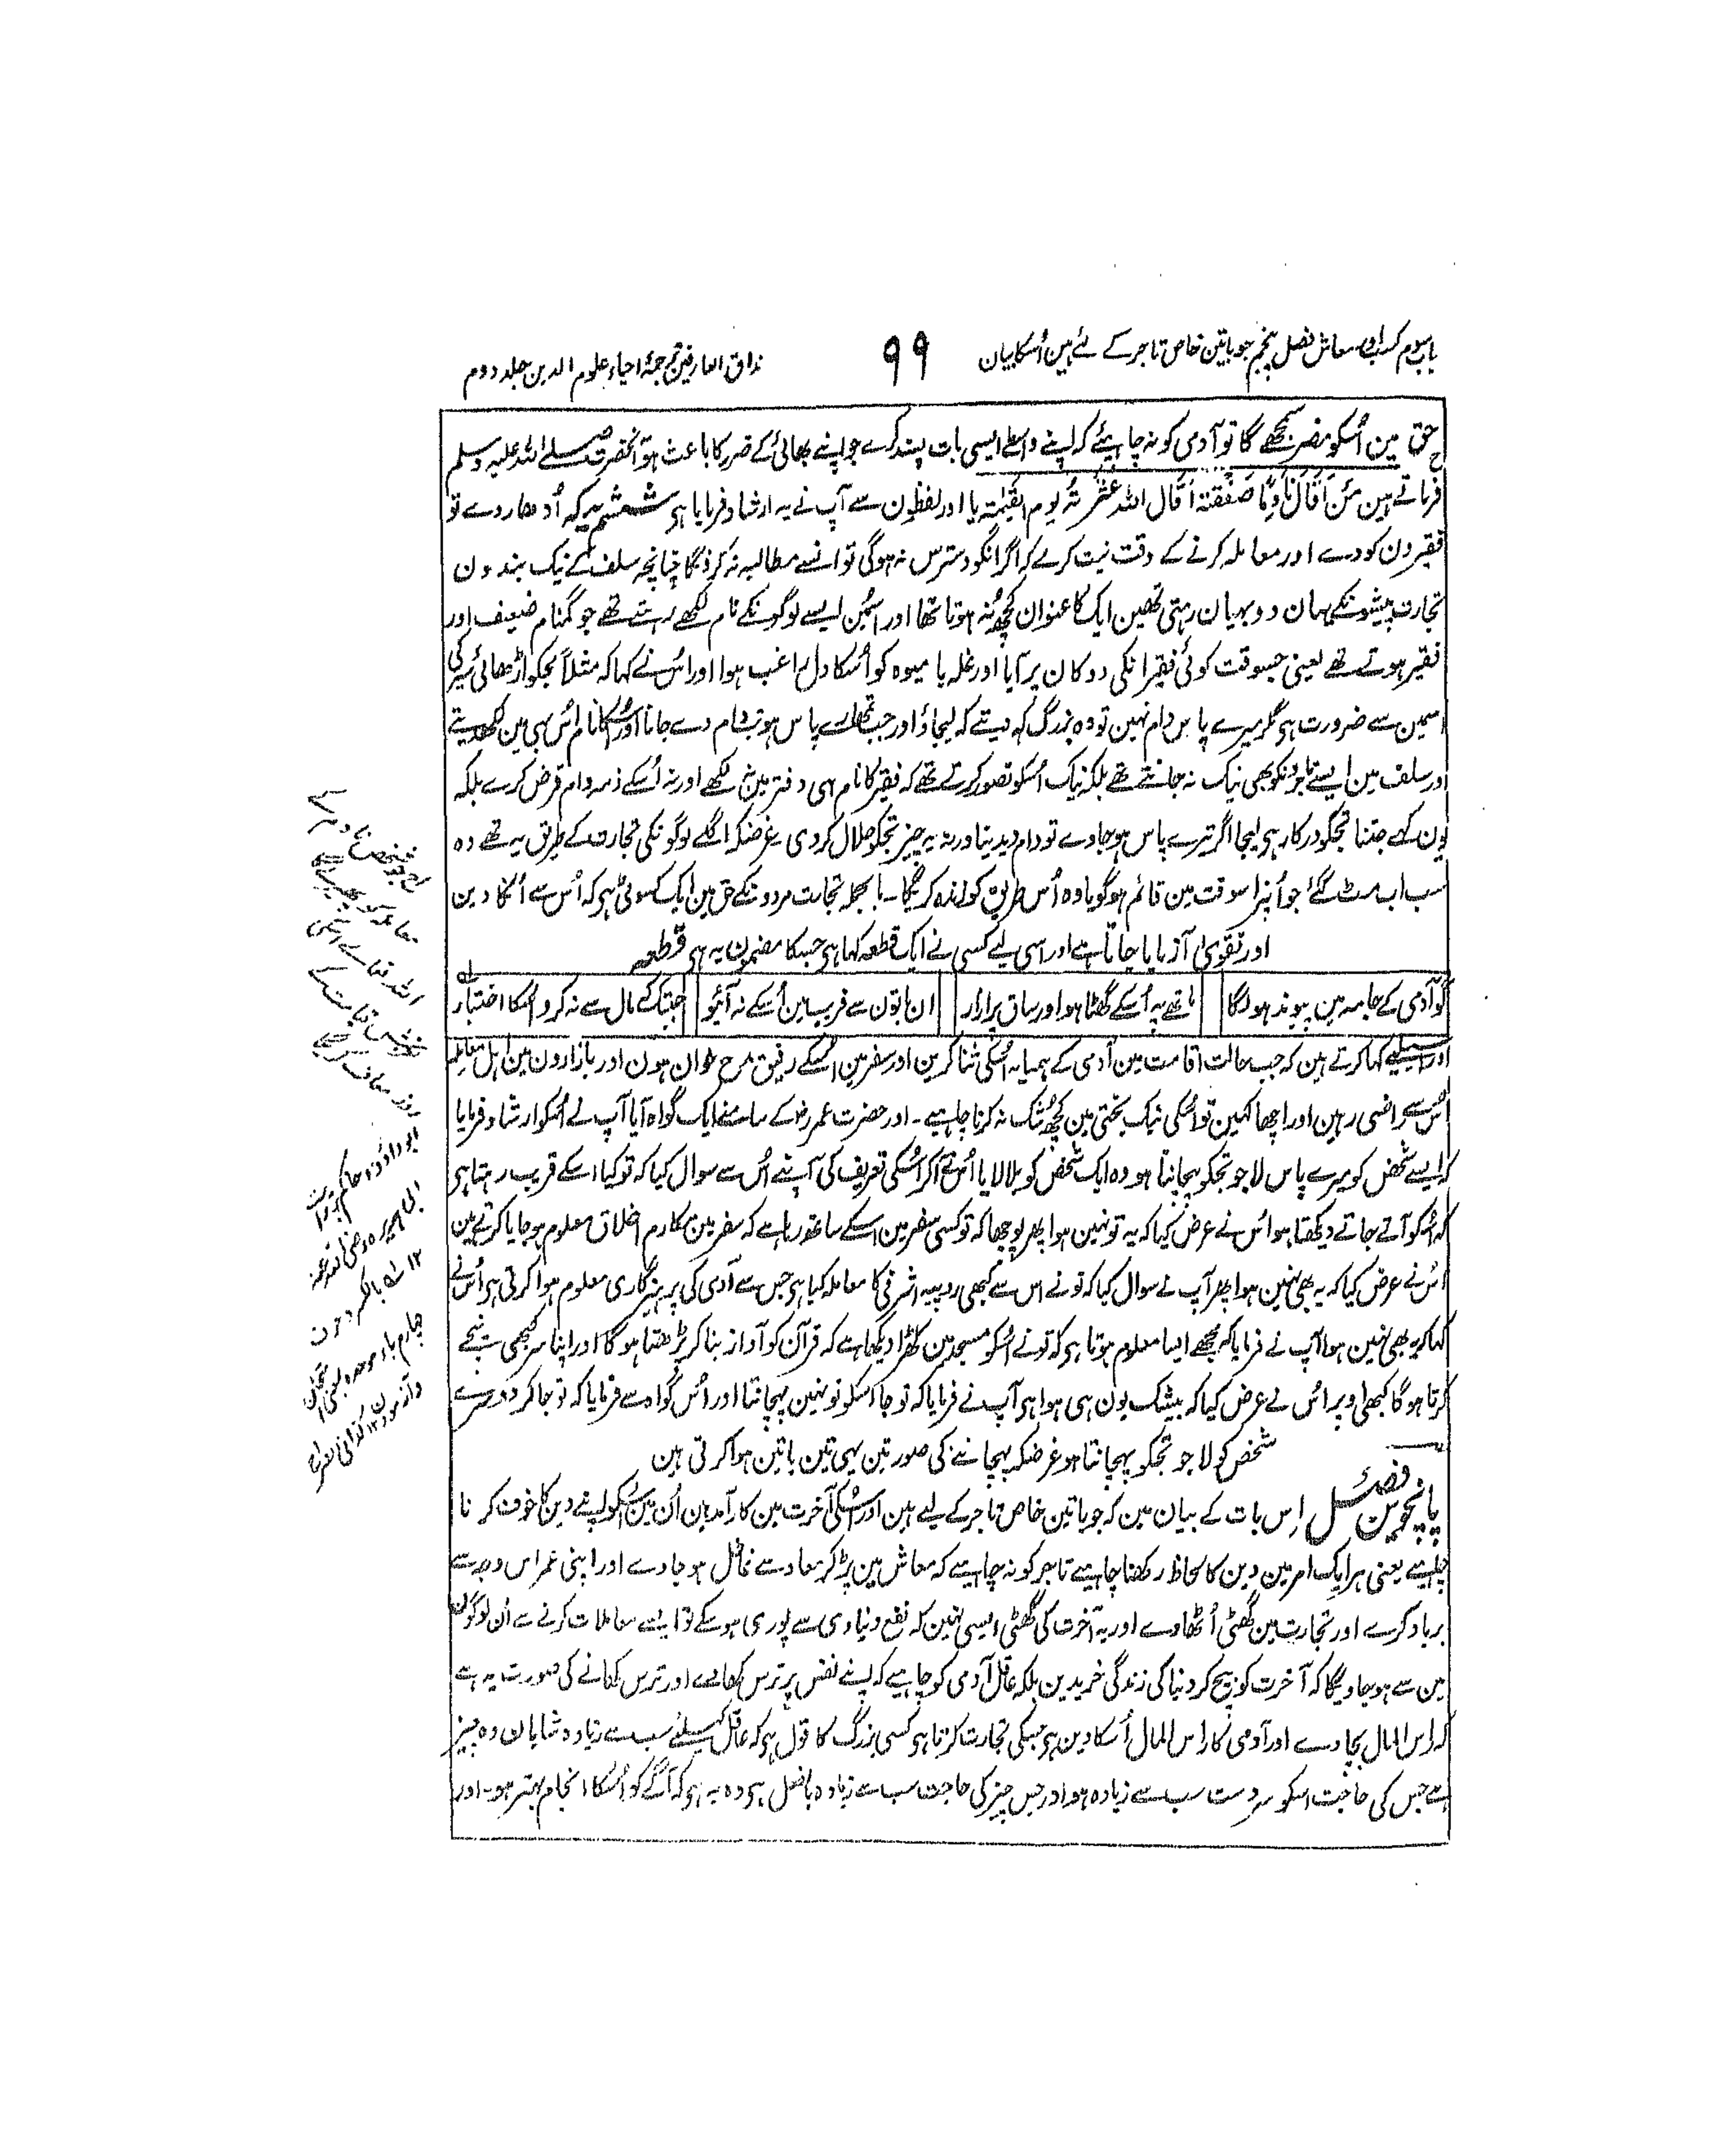 باب سوم کسب اور معاش فصل پنجم جو باتین خاص تاجر کے لئے ہین اُسکا بیان
۹۹
مذاق العارفین ترجمۂ احیاء علوم الدین جلد دوم
حق مین اُسکو مضر سمجھے گا تو آدمی کو نہ چاہیئے کہ اپنے واسطے ایسی بات پسند کرے جو اپنے بھائی کے ضرر کا باعث ہو آنحضرت صلے اللہ علیہ وسلم
فرماتے ہین مَنْ اَقَالَ نَادِمًا صَفْقَتَهٗ اَقَالَ اللہ عَثْرَتَهٗ یوم القیٰمۃ یا اور لفظون سے آپ نے یہ ارشاد فرمایا ہی ششم یہ کہ اُدھار دے تو
فقیرون کو دے اور معاملہ کرنے کے وقت نیت کرلے کہ اگر انکو دسترس نہ ہوگی تو انسے مطالبہ نہ کرونگا چنانچہ سلف کے نیک بندون
تجارت پیشونکے یہان دو بہیان رہتی تھین ایک کا عنوان کچھ نہ ہوتا تھا اور اسمین ایسے لوگونکے نام لکھے رہتے تھے جو گمنام ضعیف اور
فقیر ہوتے تھے یعنی جسوقت کوئی فقیر انکی دوکان پر آیا اور غلہ یا میوہ کو اُسکا دل راغب ہوا اور اُس نے کہا کہ مثلاً مجکو اڑھائی سیر کی
اسمین سے ضرورت ہی مگر میرے پاس دام نہین تو وہ بزرگ کہ دیتے کہ لیجاؤ اور جب تمھارے پاس ہو تب دام دے جانا اور اُسکا نام اُس بہی مین لکھدیتے
اور سلف مین ایسے تاجرونکو بھی نیک نہ جانتے تھے بلکہ نیک اُسکو تصور کرتے تھے کہ فقیر کا نام ہی دفتر مین نہ لکھے اور نہ اُسکے ذمہ دام قرض کرے بلکہ
یون کہے جتنا تجکو درکار ہی لیجا اگر تیرے پاس ہوجاوے تو دام دیدینا ورنہ یہ چیز تجکو حلال کردی غرضکہ اگلے لوگونکی تجارت کے طریق یہ تھے وہ
سب اب مٹ گئے جو اُنپر اسوقت مین قائم ہو گویا وہ اُس طریق کو زندہ کریگا ۔ بالجملہ تجارت مردونکے حق مین ایک کسوٹی ہی کہ اُس سے اُنکا دین
اور تقویٰ آزمایا جاتا ہے اور اسی لیے کسی نے ایک قطعہ کہا ہی جسکا مضمون یہ ہی قطعہ
گو آدمی کے جامہ مین پیوند ہو لگا | ماتھے پہ اُسکے گھٹا ہو اور ساق پر ازار | ان باتون سے فریب مین اُسکے نہ آئیو | جبتک کہ مال سے نہ کرو اُسکا اختبار
اور اسیلیے کہا کرتے ہین کہ جب حالت اقامت مین آدمی کے ہمسایہ اُسکی ثنا کرین اور سفر مین اُسکے رفیق مدح خوان ہون اور بازارون مین اہل معاملہ
اُس سے راضی رہین اور اچھا کہین تو اُسکی نیک بختی مین کچھ شک نہ کرنا چاہیے ۔ اور حضرت عمرؓ کے سامنے ایک گواہ آیا آپ نے اُسکو ارشاد فرمایا
کہ ایسے شخص کو میرے پاس لا جو تجکو پہچانتا ہو وہ ایک شخص کو بلا لایا اُسنے آکر اُسکی تعریف کی آپنے اُس سے سوال کیا کہ تو کیا اسکے قریب رہتا ہی
کہ اُسکو آتے جاتے دیکھتا ہو اُس نے عرض کیا کہ یہ تو نہین ہوا پھر پوچھا کہ تو کسی سفر مین اسکے ساتھ رہا ہے کہ سفر مین مکارم اخلاق معلوم ہوجایا کرتے ہین
اُس نے عرض کیا کہ یہ بھی نہین ہوا پھر آپ نے سوال کیا کہ تو نے اس سے کبھی روپیہ اشرفی کا معاملہ کیا ہی جس سے آدمی کی پرہیزگاری معلوم ہوا کرتی ہی اُس نے
کہا کہ یہ بھی نہین ہوا آپ نے فرمایا کہ مجھے ایسا معلوم ہوتا ہی کہ تو نے اُسکو مسجد مین کھڑا دیکھا ہے کہ قرآن کو آواز بنا کر پڑھتا ہوگا اور اپنا سر کبھی نیچے
کرتا ہوگا کبھی اوپر اُس نے عرض کیا کہ بیشک یون ہی ہوا ہی آپ نے فرمایا کہ تو جا اُسکو تو نہین پہچانتا اور اُس گواہ سے فرمایا کہ تو جا کر دوسرے
شخص کو لا جو تجکو پہچانتا ہو غرضکہ پہچاننے کی صورتین یہی تین باتین ہوا کرتی ہین
پانچوین فصل اِس بات کے بیان مین کہ جو باتین خاص تاجر کے لیے ہین اور اُسکی آخرت مین کارآمد ہین اُن مین اُسکو اپنے دین کا خوف کرنا
چاہیے یعنی ہر ایک امر مین دین کا لحاظ رکھنا چاہیے تاجر کو نہ چاہیے کہ معاش مین پڑکر معاد سے غافل ہوجاوے اور اپنی عمر اس وجہ سے
برباد کرے اور تجارت مین گھٹی اُٹھاوے اور یہ آخرت کی گھٹی ایسی نہین کہ نفع دنیاوی سے پوری ہوسکے تو ایسے معاملات کرنے سے اُن لوگون
مین سے ہوجاویگا کہ آخرت کو بیچ کر دنیا کی زندگی خریدین بلکہ عاقل آدمی کو چاہیے کہ اپنے نفس پر ترس کھاوے اور ترس کھانے کی صورت یہ ہے
کہ راس المال بچاوے اور آدمی کا راس المال اُسکا دین ہی جسکی تجارت کرتا ہی کسی بزرگ کا قول ہی کہ عاقل کیلئے سب سے زیادہ شایان وہ چیز
ہے جس کی حاجت اسکو سردست سب سے زیادہ ہو اور جس چیز کی حاجت سب سے زیادہ بالفعل ہی وہ یہ ہی کہ آگے کو اُسکا انجام بہتر ہو ۔ اور
جو شخص نادم سے
معاملہ کو پھیر لے
اللہ تعالے اُسکی
لغزش قیامت کے
روز معاف کریگا
ابو داؤد و حاکم بروایت
ابی ہریرہ رضی اللہ عنہ
۱۲
چہارم باء موحدہ بمعنی امتحان